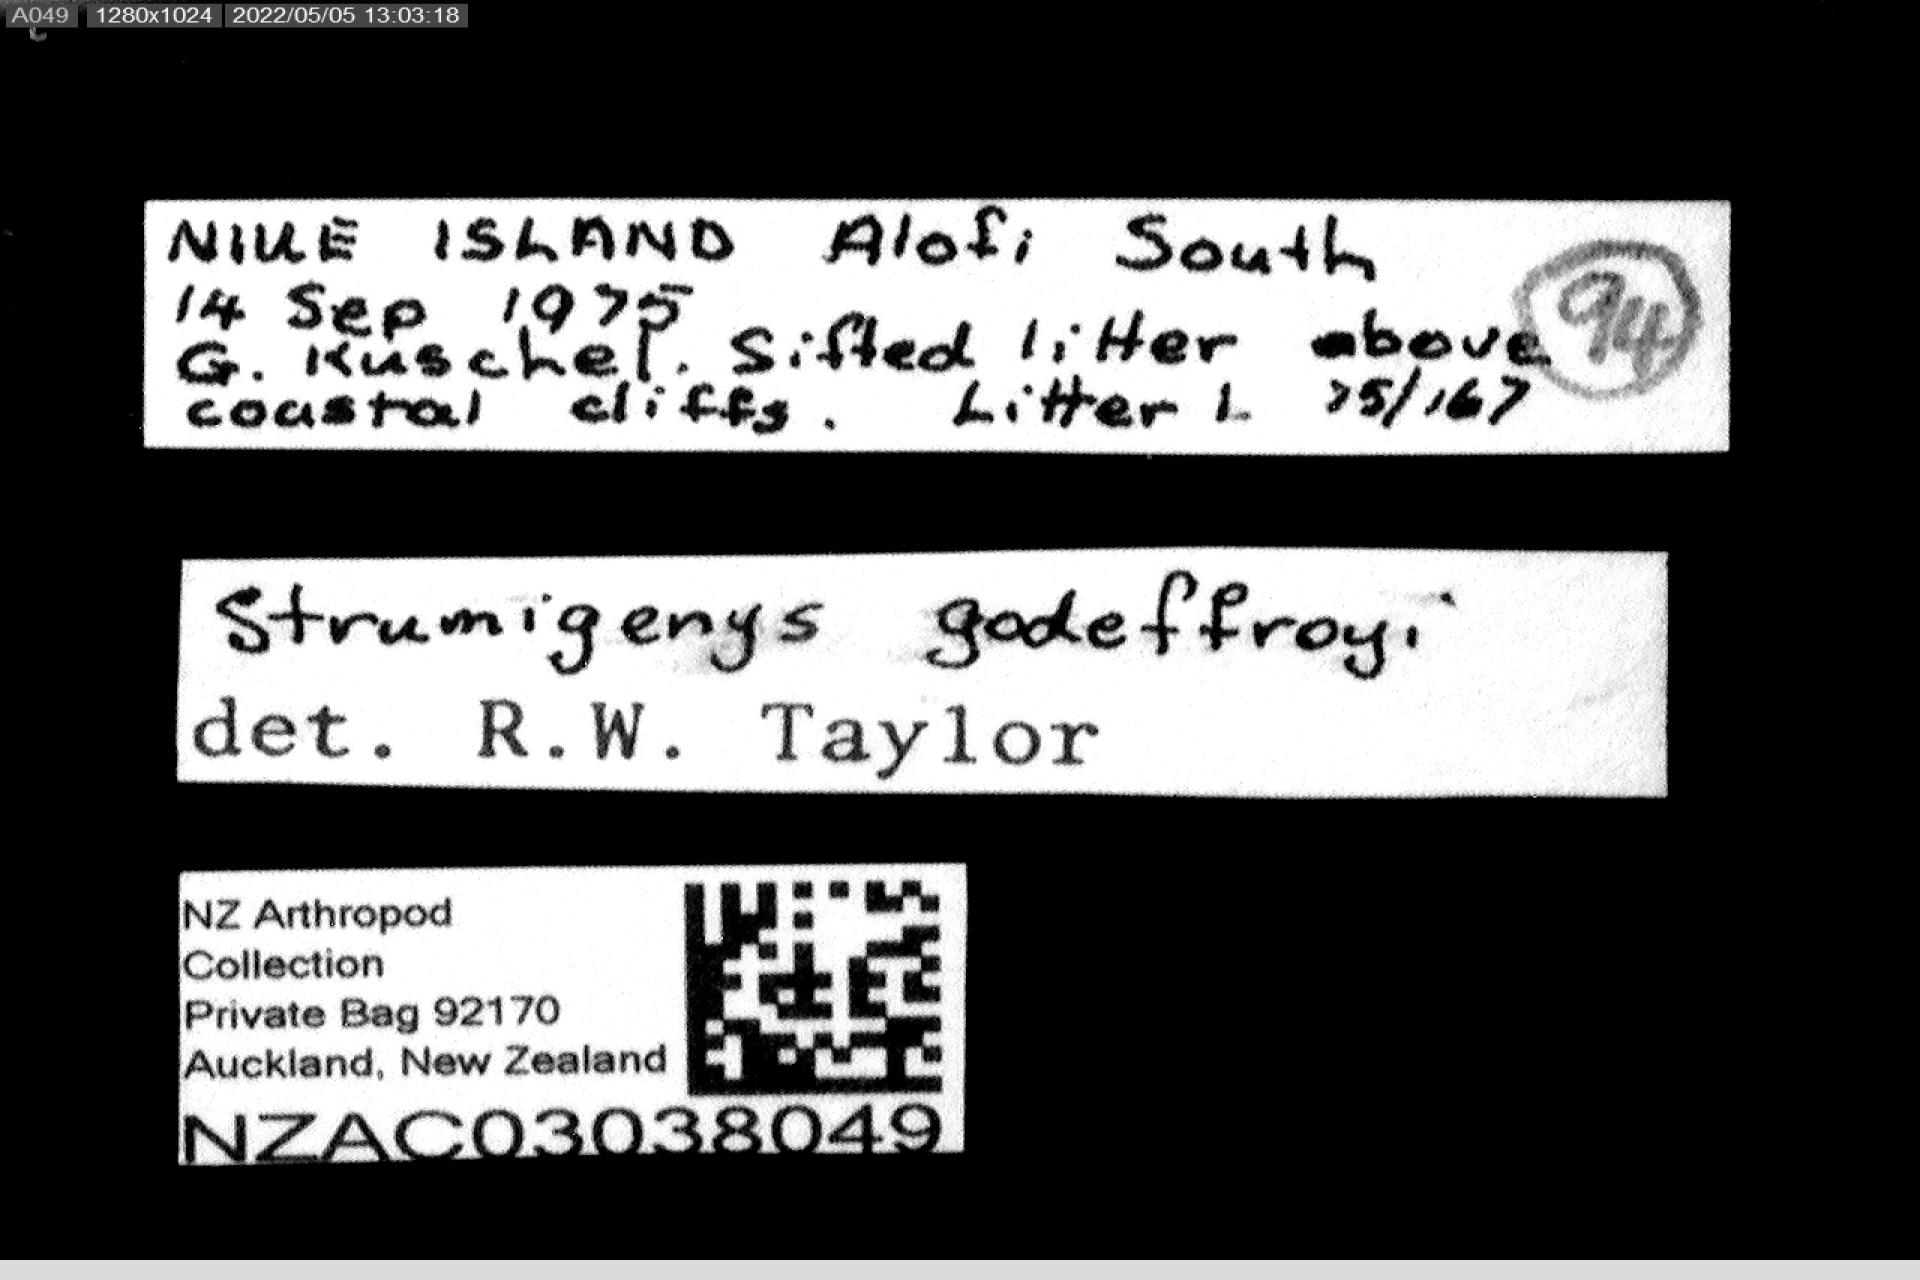 A049 1280x1024 2022/05/05 13:03:18
NIUE ISLAND Alofi South
14 Sep 1975
94
G. Kuschel. Sifted litter above
coastal cliffs. Litter L 75/167
Strumigenys godeffroyi
det. R.W. Taylor
NZ Arthropod
Collection
Private Bag 92170
Auckland, New Zealand
NZAC03038049